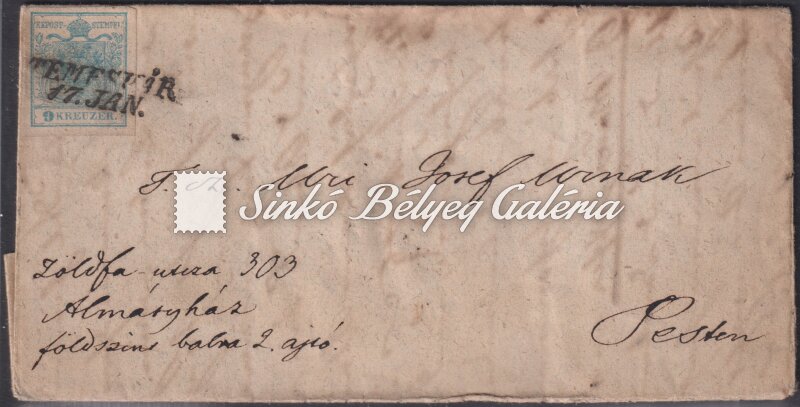 KKPOST-STEMPEL
TEMESVÁR
17. JAN.
9 KREUZER.
T. Uri Josef úrnak
Sinkó Bélyeg Galéria
Zöldfa utsza 303
Almásyház
földszint balra 2. ajtó.
Pesten